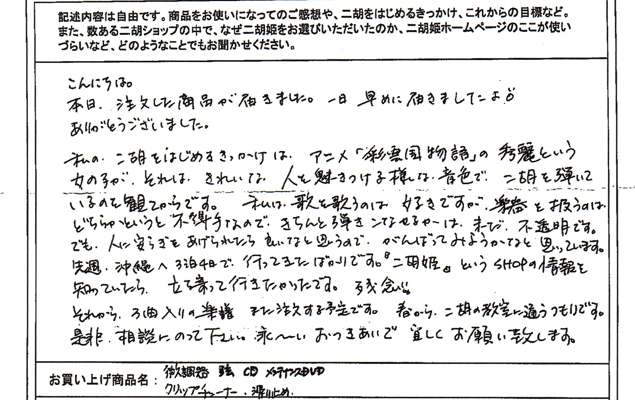 記述内容は自由です。商品をお使いになってのご感想や、二胡をはじめるきっかけ、これからの目標など。
また、数ある二胡ショップの中で、なぜ二胡姫をお選びいただいたのか、二胡姫ホームページのここが使い
づらいなど、どのようなことでもお聞かせください。
こんにちは。
本日、注文した商品が届きました。一日早めに届きましたよ♪
ありがとうございました。
私の、二胡をはじめるきっかけは、アニメ「彩雲国物語」の秀麗という
女の子が、それは、きれいな、人を魅きつける様な音色で、二胡を弾いて
いるのを観てからです。私は、歌を歌うのは好きですが、楽器を扱うのは、
どちらかというと不得手なので、きちんと弾きこなせるかは、まだ、不透明です。
でも、人に安らぎをあげられたら良いなと思うので、がんばってみようかなと思っています。
先週、沖縄へ3泊4日で、行ってきたばかりです。『二胡姫』というSHOPの情報を
知っていたら、立ち寄って行きたかったです。残念。
それから、3曲入りの楽譜 また注文する予定です。春から、二胡の教室に通うつもりです。
是非、相談にのって下さい。永〜いおつきあいで宜しくお願い致します。
お買い上げ商品名： 微調器 弦 CD メンテナンスDVD
クリップチューナー、滑り止め.